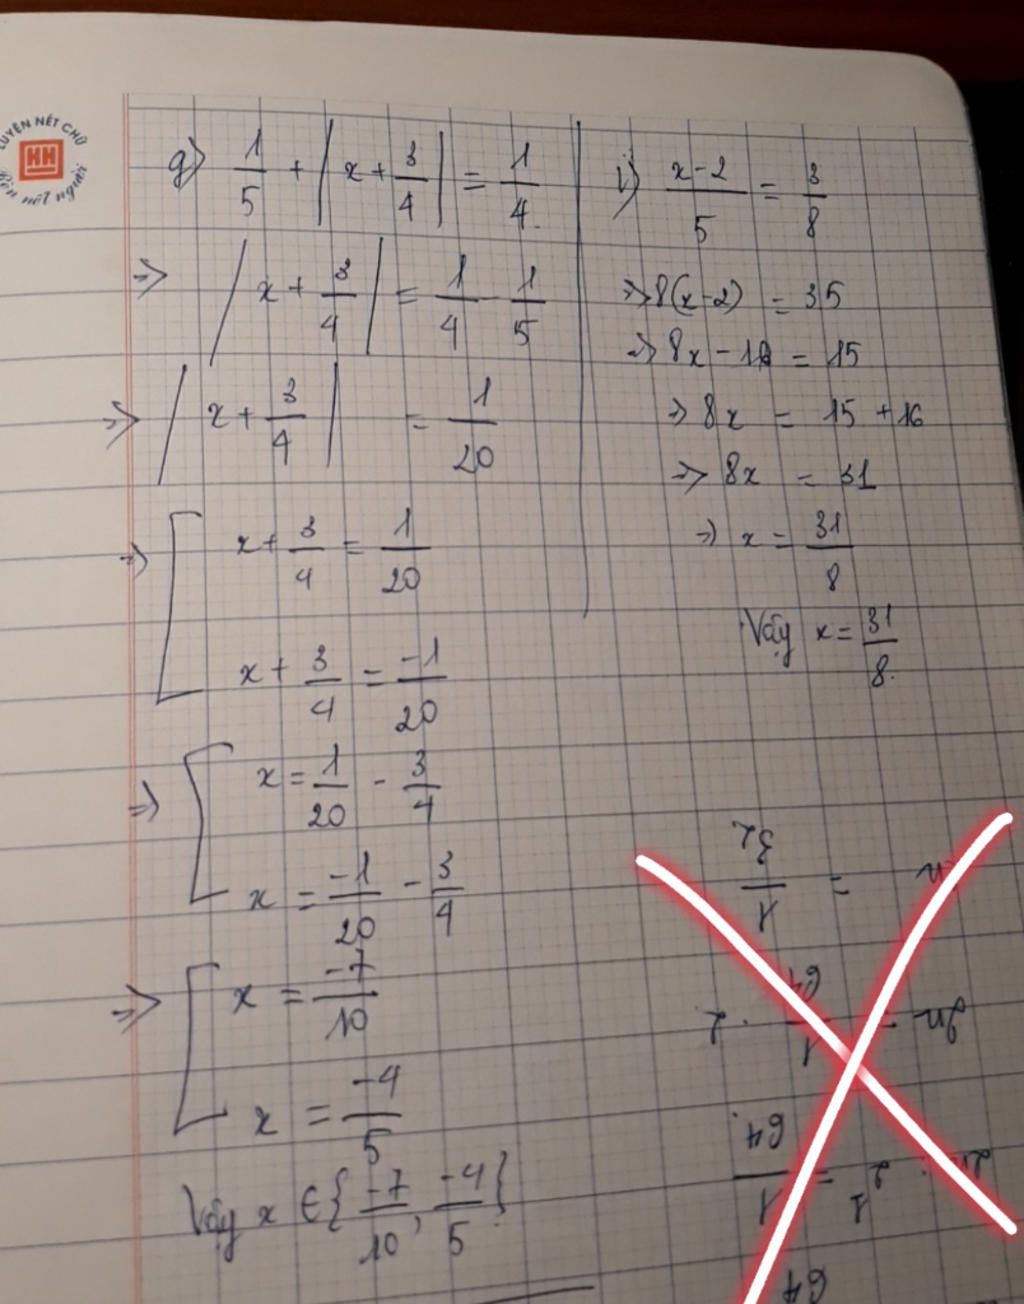 LUYỆN NÉT CHỮ
HH
Rèn nết người
g) 1/5 + |x + 3/4| = 1/4.
=> |x + 3/4| = 1/4 - 1/5
=> |x + 3/4| = 1/20
=> [ x + 3/4 = 1/20
x + 3/4 = -1/20
=> [ x = 1/20 - 3/4
x = -1/20 - 3/4
=> [ x = -7/10
x = -4/5
Vậy x ∈ { -7/10 , -4/5 }
i) x-2/5 = 3/8
=> 8(x-2) = 35
=> 8x - 16 = 15
=> 8x = 15 + 16
=> 8x = 31
=> x = 31/8
Vậy x = 31/8.
64
1/64
1/64 . 2
= 1/32